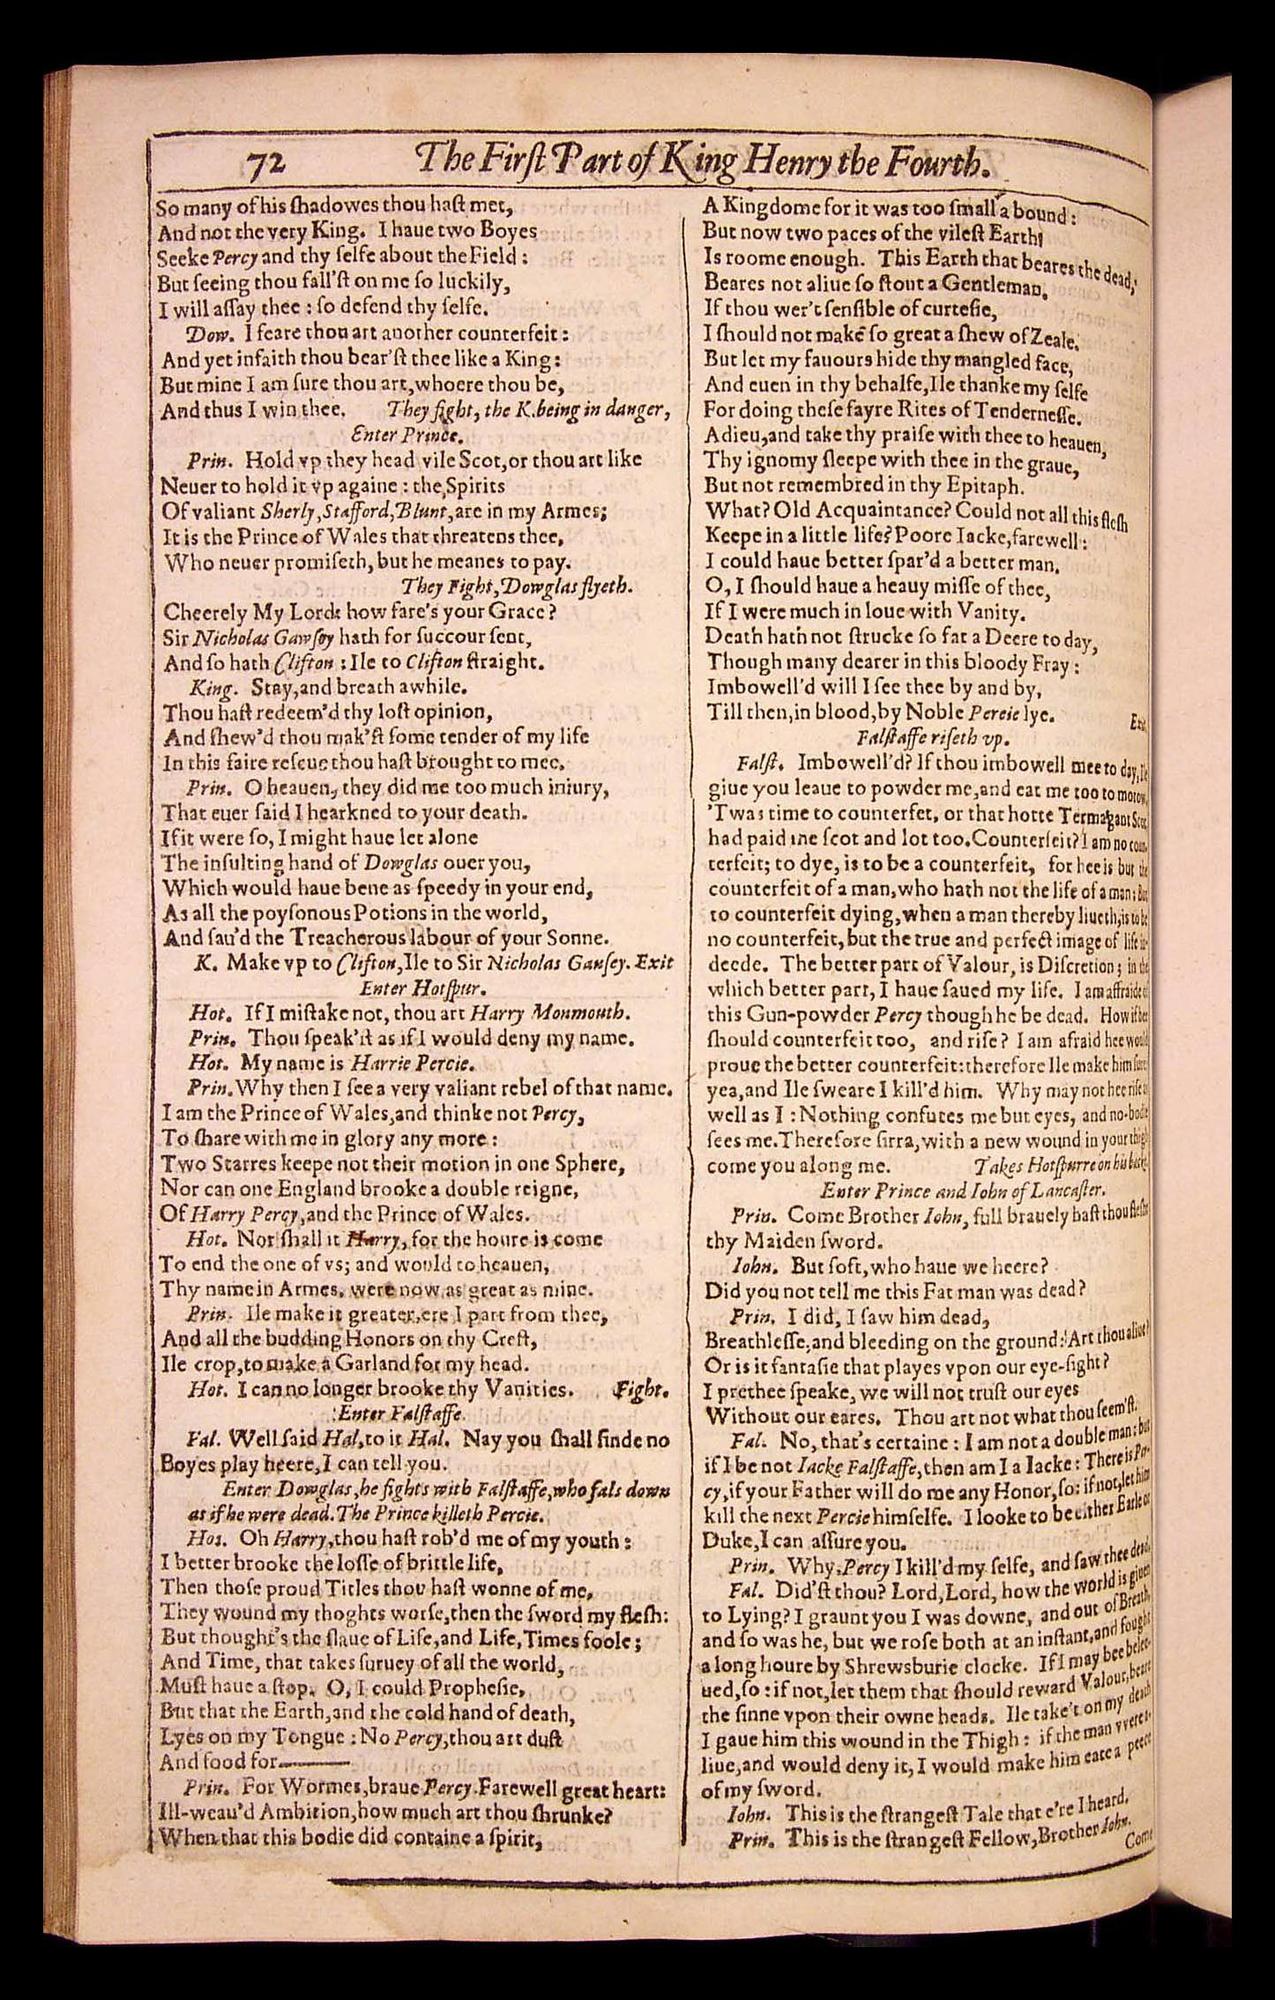 72 The First Part of King Henry the Fourth.
So many of his shadowes thou hast met,
And not the very King. I haue two Boyes
Seeke Percy and thy selfe about the Field:
But seeing thou fall'st on me so luckily,
I will assay thee: so defend thy selfe.
Dow. I feare thou art another counterfeit:
And yet infaith thou bear'st thee like a King:
But mine I am sure thou art, whoere thou be,
And thus I win thee. They fight, the K. being in danger,
Enter Prince.
Prin. Hold vp they head vile Scot, or thou art like
Neuer to hold it vp againe: the Spirits
Of valiant Sherly, Stafford, Blunt, are in my Armes;
It is the Prince of Wales that threatens thee,
Who neuer promiseth, but he meanes to pay.
They Fight, Dowglas flyeth.
Cheerely My Lord: how fare's your Grace?
Sir Nicholas Gawsey hath for succour sent,
And so hath Clifton: Ile to Clifton straight.
King. Stay, and breath awhile.
Thou hast redeem'd thy lost opinion,
And shew'd thou mak'st some tender of my life
In this faire rescue thou hast brought to mee.
Prin. O heauen, they did me too much iniury,
That euer said I hearkned to your death.
If it were so, I might haue let alone
The insulting hand of Dowglas ouer you,
Which would haue bene as speedy in your end,
As all the poysonous Potions in the world,
And sau'd the Treacherous labour of your Sonne.
K. Make vp to Clifton, Ile to Sir Nicholas Gausey. Exit
Enter Hotspur.
Hot. If I mistake not, thou art Harry Monmouth.
Prin. Thou speak'st as if I would deny my name.
Hot. My name is Harrie Percie.
Prin. Why then I see a very valiant rebel of that name.
I am the Prince of Wales, and thinke not Percy,
To share with me in glory any more:
Two Starres keepe not their motion in one Sphere,
Nor can one England brooke a double reigne,
Of Harry Percy, and the Prince of Wales.
Hot. Nor shall it Harry, for the houre is come
To end the one of vs; and would to heauen,
Thy name in Armes, were now as great as mine.
Prin. Ile make it greater, ere I part from thee,
And all the budding Honors on thy Crest,
Ile crop, to make a Garland for my head.
Hot. I can no longer brooke thy Vanities. Fight.
Enter Falstaffe.
Fal. Well said Hal, to it Hal. Nay you shall finde no
Boyes play heere, I can tell you.
Enter Dowglas, he fights with Falstaffe, who fals down
as if he were dead. The Prince killeth Percie.
Hot. Oh Harry, thou hast rob'd me of my youth:
I better brooke the losse of brittle life,
Then those proud Titles thou hast wonne of me,
They wound my thoghts worse, then the sword my flesh:
But thought's the slaue of Life, and Life, Times foole;
And Time, that takes suruey of all the world,
Must haue a stop. O, I could Prophesie,
But that the Earth, and the cold hand of death,
Lyes on my Tongue: No Percy, thou art dust
And food for———
Prin. For Wormes, braue Percy. Farewell great heart:
Ill-weau'd Ambition, how much art thou shrunke?
When that this bodie did containe a spirit,
A Kingdome for it was too small a bound:
But now two paces of the vilest Earth
Is roome enough. This Earth that beares the dead,
Beares not aliue so stout a Gentleman.
If thou wer't sensible of curtesie,
I should not make so great a shew of Zeale.
But let my fauours hide thy mangled face,
And euen in thy behalfe, Ile thanke my selfe
For doing these fayre Rites of Tendernesse.
Adieu, and take thy praise with thee to heauen,
Thy ignomy sleepe with thee in the graue,
But not remembred in thy Epitaph.
What? Old Acquaintance? Could not all this flesh
Keepe in a little life? Poore Iacke, farewell:
I could haue better spar'd a better man.
O, I should haue a heauy misse of thee,
If I were much in loue with Vanity.
Death hath not strucke so fat a Deere to day,
Though many dearer in this bloody Fray:
Imbowell'd will I see thee by and by,
Till then, in blood, by Noble Percie lye. Exit
Falstaffe riseth vp.
Falst. Imbowell'd? If thou imbowell mee to day, Ile
giue you leaue to powder me, and eat me too to morow.
'Twas time to counterfet, or that hotte Termagant Scot,
had paid me scot and lot too. Counterfeit? I am no coun-
terfeit; to dye, is to be a counterfeit, for hee is but the
counterfeit of a man, who hath not the life of a man: But
to counterfeit dying, when a man thereby liueth, is to be
no counterfeit, but the true and perfect image of life in-
deede. The better part of Valour, is Discretion; in the
which better part, I haue saued my life. I am affraide of
this Gun-powder Percy though he be dead. How if hee
should counterfeit too, and rise? I am afraid hee would
proue the better counterfeit: therefore Ile make him sure:
yea, and Ile sweare I kill'd him. Why may not hee rise as
well as I: Nothing confutes me but eyes, and no-bodie
sees me. Therefore sirra, with a new wound in your thigh
come you along me. Takes Hotspurre on his backe.
Enter Prince and Iohn of Lancaster.
Prin. Come Brother Iohn, full brauely hast thou flesht
thy Maiden sword.
Iohn. But soft, who haue we heere?
Did you not tell me this Fat man was dead?
Prin. I did, I saw him dead,
Breathlesse, and bleeding on the ground: Art thou aliue?
Or is it fantasie that playes vpon our eye-sight?
I prethee speake, we will not trust our eyes
Without our eares. Thou art not what thou seem'st.
Fal. No, that's certaine: I am not a double man: but
if I be not Iacke Falstaffe, then am I a Iacke: There is Per-
cy, if your Father will do me any Honor, so: if not, let him
kill the next Percie himselfe. I looke to be either Earle or
Duke, I can assure you.
Prin. Why, Percy I kill'd my selfe, and saw thee dead.
Fal. Did'st thou? Lord, Lord, how the world is giuen
to Lying? I graunt you I was downe, and out of Breath,
and so was he, but we rose both at an instant, and fought
a long houre by Shrewsburie clocke. If I may bee belee-
ued, so: if not, let them that should reward Valour, beare
the sinne vpon their owne heads. Ile take't on my death
I gaue him this wound in the Thigh: if the man vvere a-
liue, and would deny it, I would make him eate a peece
of my sword.
Iohn. This is the strangest Tale that e're I heard.
Prin. This is the strangest Fellow, Brother Iohn.
Come